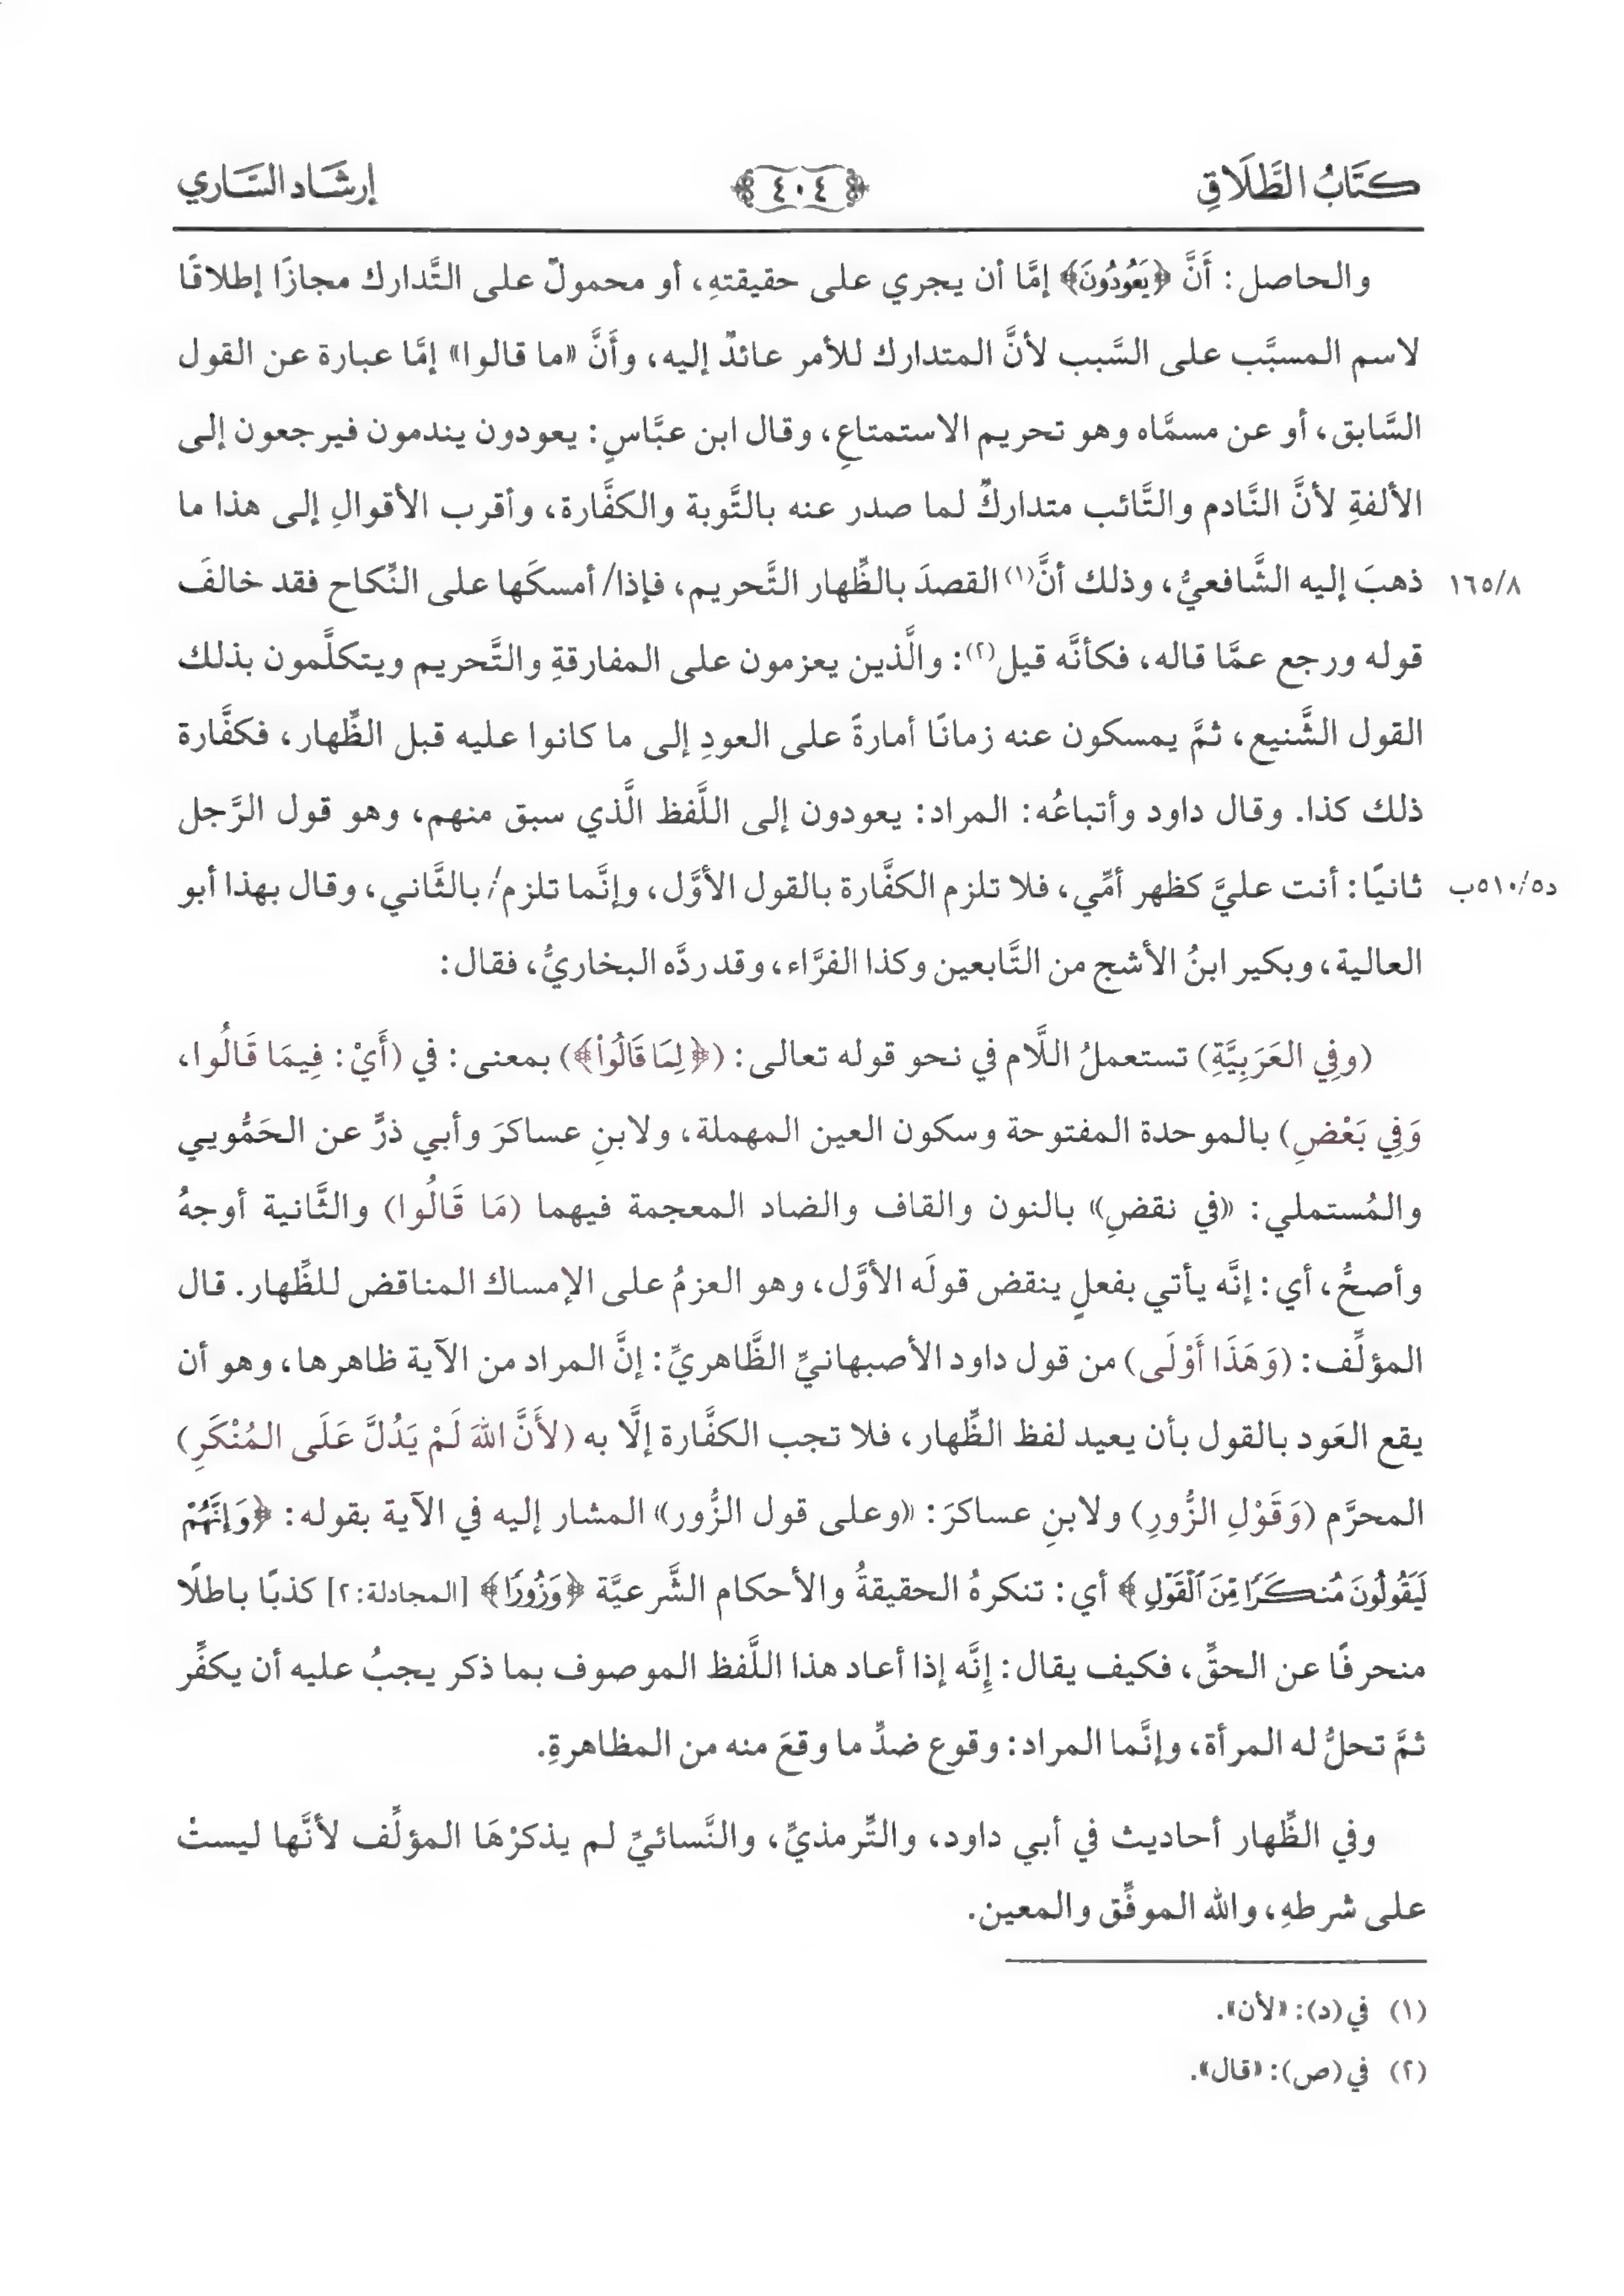 كتَابُ الطَّلَاقِ
٤٠٤
إرشَاد السَّاري
والحاصل: أَنَّ ﴿يَعُودُونَ﴾ إمَّا أن يجري على حقيقتهِ، أو محمولٌ على التَّدارك مجازًا إطلاقًا
لاسم المسبَّب على السَّبب لأنَّ المتدارك للأمر عائدٌ إليه، وأَنَّ «ما قالوا» إمَّا عبارة عن القول
السَّابق، أو عن مسمَّاه وهو تحريم الاستمتاعِ، وقال ابن عبَّاسٍ: يعودون يندمون فيرجعون إلى
الألفةِ لأنَّ النَّادم والتَّائب متداركٌ لما صدر عنه بالتَّوبة والكفَّارة، وأقرب الأقوالِ إلى هذا ما
١٦٥/٨ ذهبَ إليه الشَّافعيُّ، وذلك أنَّ(١) القصدَ بالظِّهار التَّحريم، فإذا/ أمسكَها على النِّكاح فقد خالفَ
قوله ورجع عمَّا قاله، فكأنَّه قيل(٢): والَّذين يعزمون على المفارقةِ والتَّحريم ويتكلَّمون بذلك
القول الشَّنيع، ثمَّ يمسكون عنه زمانًا أمارةً على العودِ إلى ما كانوا عليه قبل الظِّهار، فكفَّارة
ذلك كذا. وقال داود وأتباعُه: المراد: يعودون إلى اللَّفظ الَّذي سبق منهم، وهو قول الرَّجل
د٥١٠/٥ب ثانيًا: أنت عليَّ كظهر أمِّي، فلا تلزم الكفَّارة بالقول الأوَّل، وإنَّما تلزم/ بالثَّاني، وقال بهذا أبو
العالية، وبكير ابنُ الأشج من التَّابعين وكذا الفرَّاء، وقد ردَّه البخاريُّ، فقال:
(وفِي العَرَبِيَّةِ) تستعملُ اللَّام في نحو قوله تعالى: (﴿لِمَا قَالُواْ﴾) بمعنى: في (أَيْ: فِيمَا قَالُوا،
وَفِي بَعْضِ) بالموحدة المفتوحة وسكون العين المهملة، ولابنِ عساكرَ وأبي ذرٍّ عن الحَمُّويي
والمُستملي: «في نقضِ» بالنون والقاف والضاد المعجمة فيهما (مَا قَالُوا) والثَّانية أوجهُ
وأصحُّ، أي: إنَّه يأتي بفعلٍ ينقض قولَه الأوَّل، وهو العزمُ على الإمساك المناقض للظِّهار. قال
المؤلِّف: (وَهَذَا أَوْلَى) من قول داود الأصبهانيِّ الظَّاهريِّ: إنَّ المراد من الآية ظاهرها، وهو أن
يقع العَود بالقول بأن يعيد لفظ الظِّهار، فلا تجب الكفَّارة إلَّا به (لأَنَّ اللهَ لَمْ يَدُلَّ عَلَى المُنْكَرِ)
المحرَّم (وَقَوْلِ الزُّورِ) ولابنِ عساكرَ: «وعلى قول الزُّور» المشار إليه في الآية بقوله: ﴿وَإِنَّهُمْ
لَيَقُولُونَ مُنكَرًا مِّنَ ٱلْقَوْلِ﴾ أي: تنكرهُ الحقيقةُ والأحكام الشَّرعيَّة ﴿وَزُورًا﴾ [المجادلة: ٢] كذبًا باطلًا
منحرفًا عن الحقِّ، فكيف يقال: إِنَّه إذا أعاد هذا اللَّفظ الموصوف بما ذكر يجبُ عليه أن يكفِّر
ثمَّ تحلُّ له المرأة، وإنَّما المراد: وقوع ضدِّ ما وقعَ منه من المظاهرةِ.
وفي الظِّهار أحاديث في أبي داود، والتِّرمذيِّ، والنَّسائيِّ لم يذكرْهَا المؤلِّف لأنَّها ليستْ
على شرطهِ، والله الموفِّق والمعين.
(١) في (د): «لأن».
(٢) في (ص): «قال».